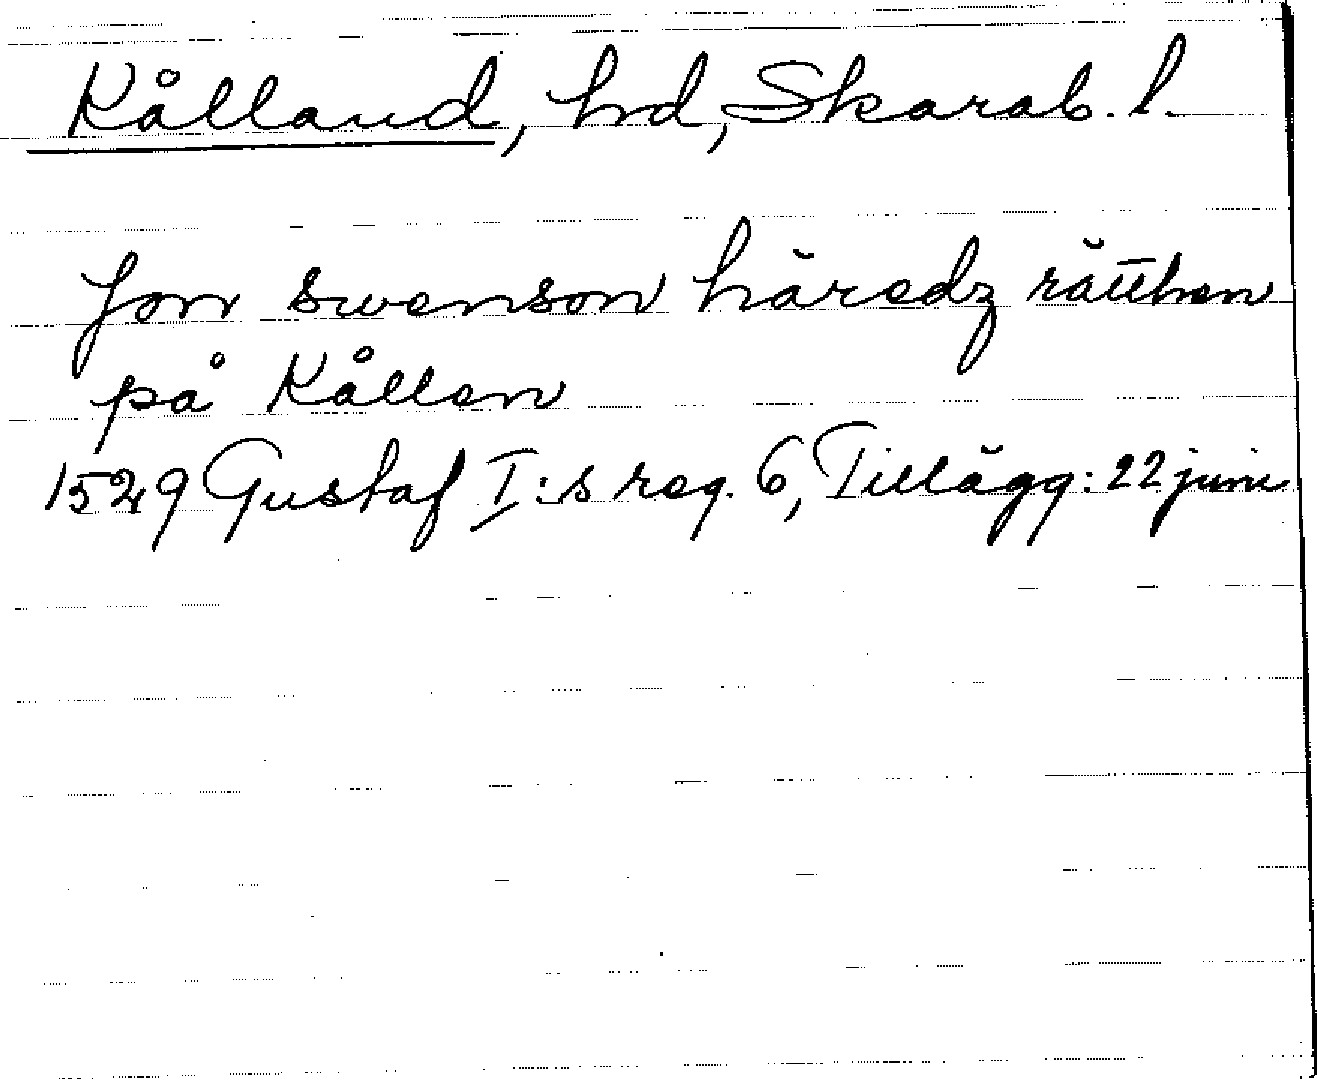 Kålland, hd, Skarab. l.
Jon swenson häredz rätthen
på Kållen
1529 Gustaf I:s reg. 6, Tillägg: 22 juni